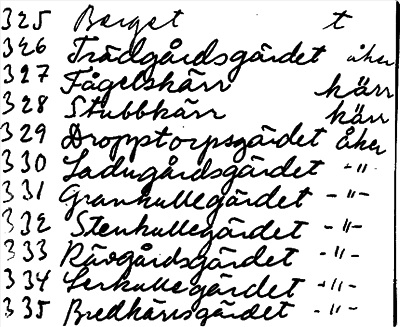 325 Berget t
326 Trädgårdsgärdet åker
327 Fågelskärr kärr
328 Stubbkärr kärr
329 Dropptorpsgärdet åker
330 Ladugårdsgärdet -"-
331 Grankullegärdet -"-
332 Stenkullegärdet -"-
333 Rävgårdsgärdet -"-
334 Lerkullegärdet -"-
335 Bredkärrsgärdet -"-